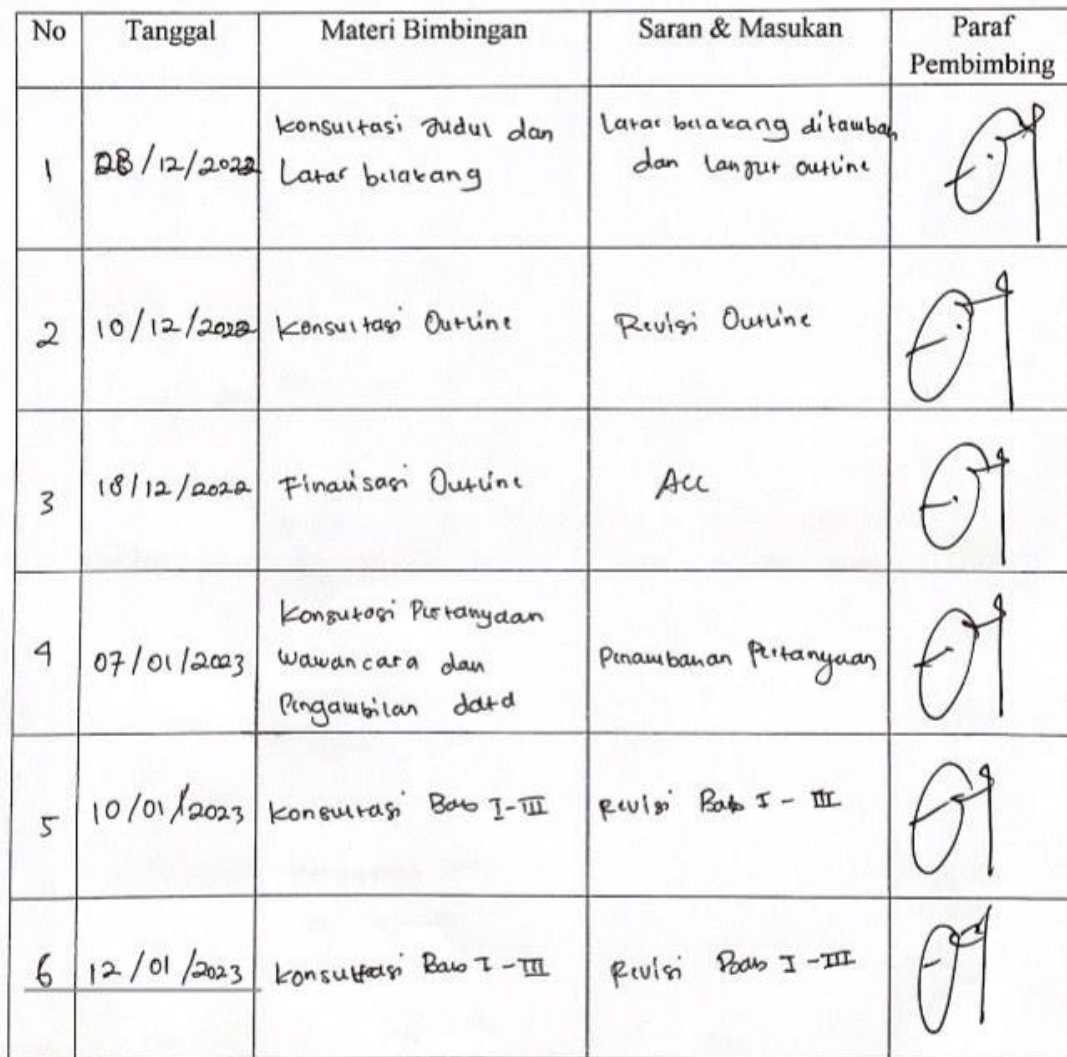 No Tanggal Materi Bimbingan Saran & Masukan Paraf
Pembimbing
1 08/12/2022 Konsultasi Judul dan Latar belakang ditambah
Latar belakang dan lanjut outline
2 10/12/2022 Konsultasi Outline Revisi Outline
3 18/12/2022 Finalisasi Outline Acc
Konsultasi Pertanyaan
4 07/01/2023 wawancara dan Penambahan Pertanyaan
Pengambilan data
5 10/01/2023 Konsultasi Bab I-III Revisi Bab I - III
6 12/01/2023 Konsultasi Bab I-III Revisi Bab I-III